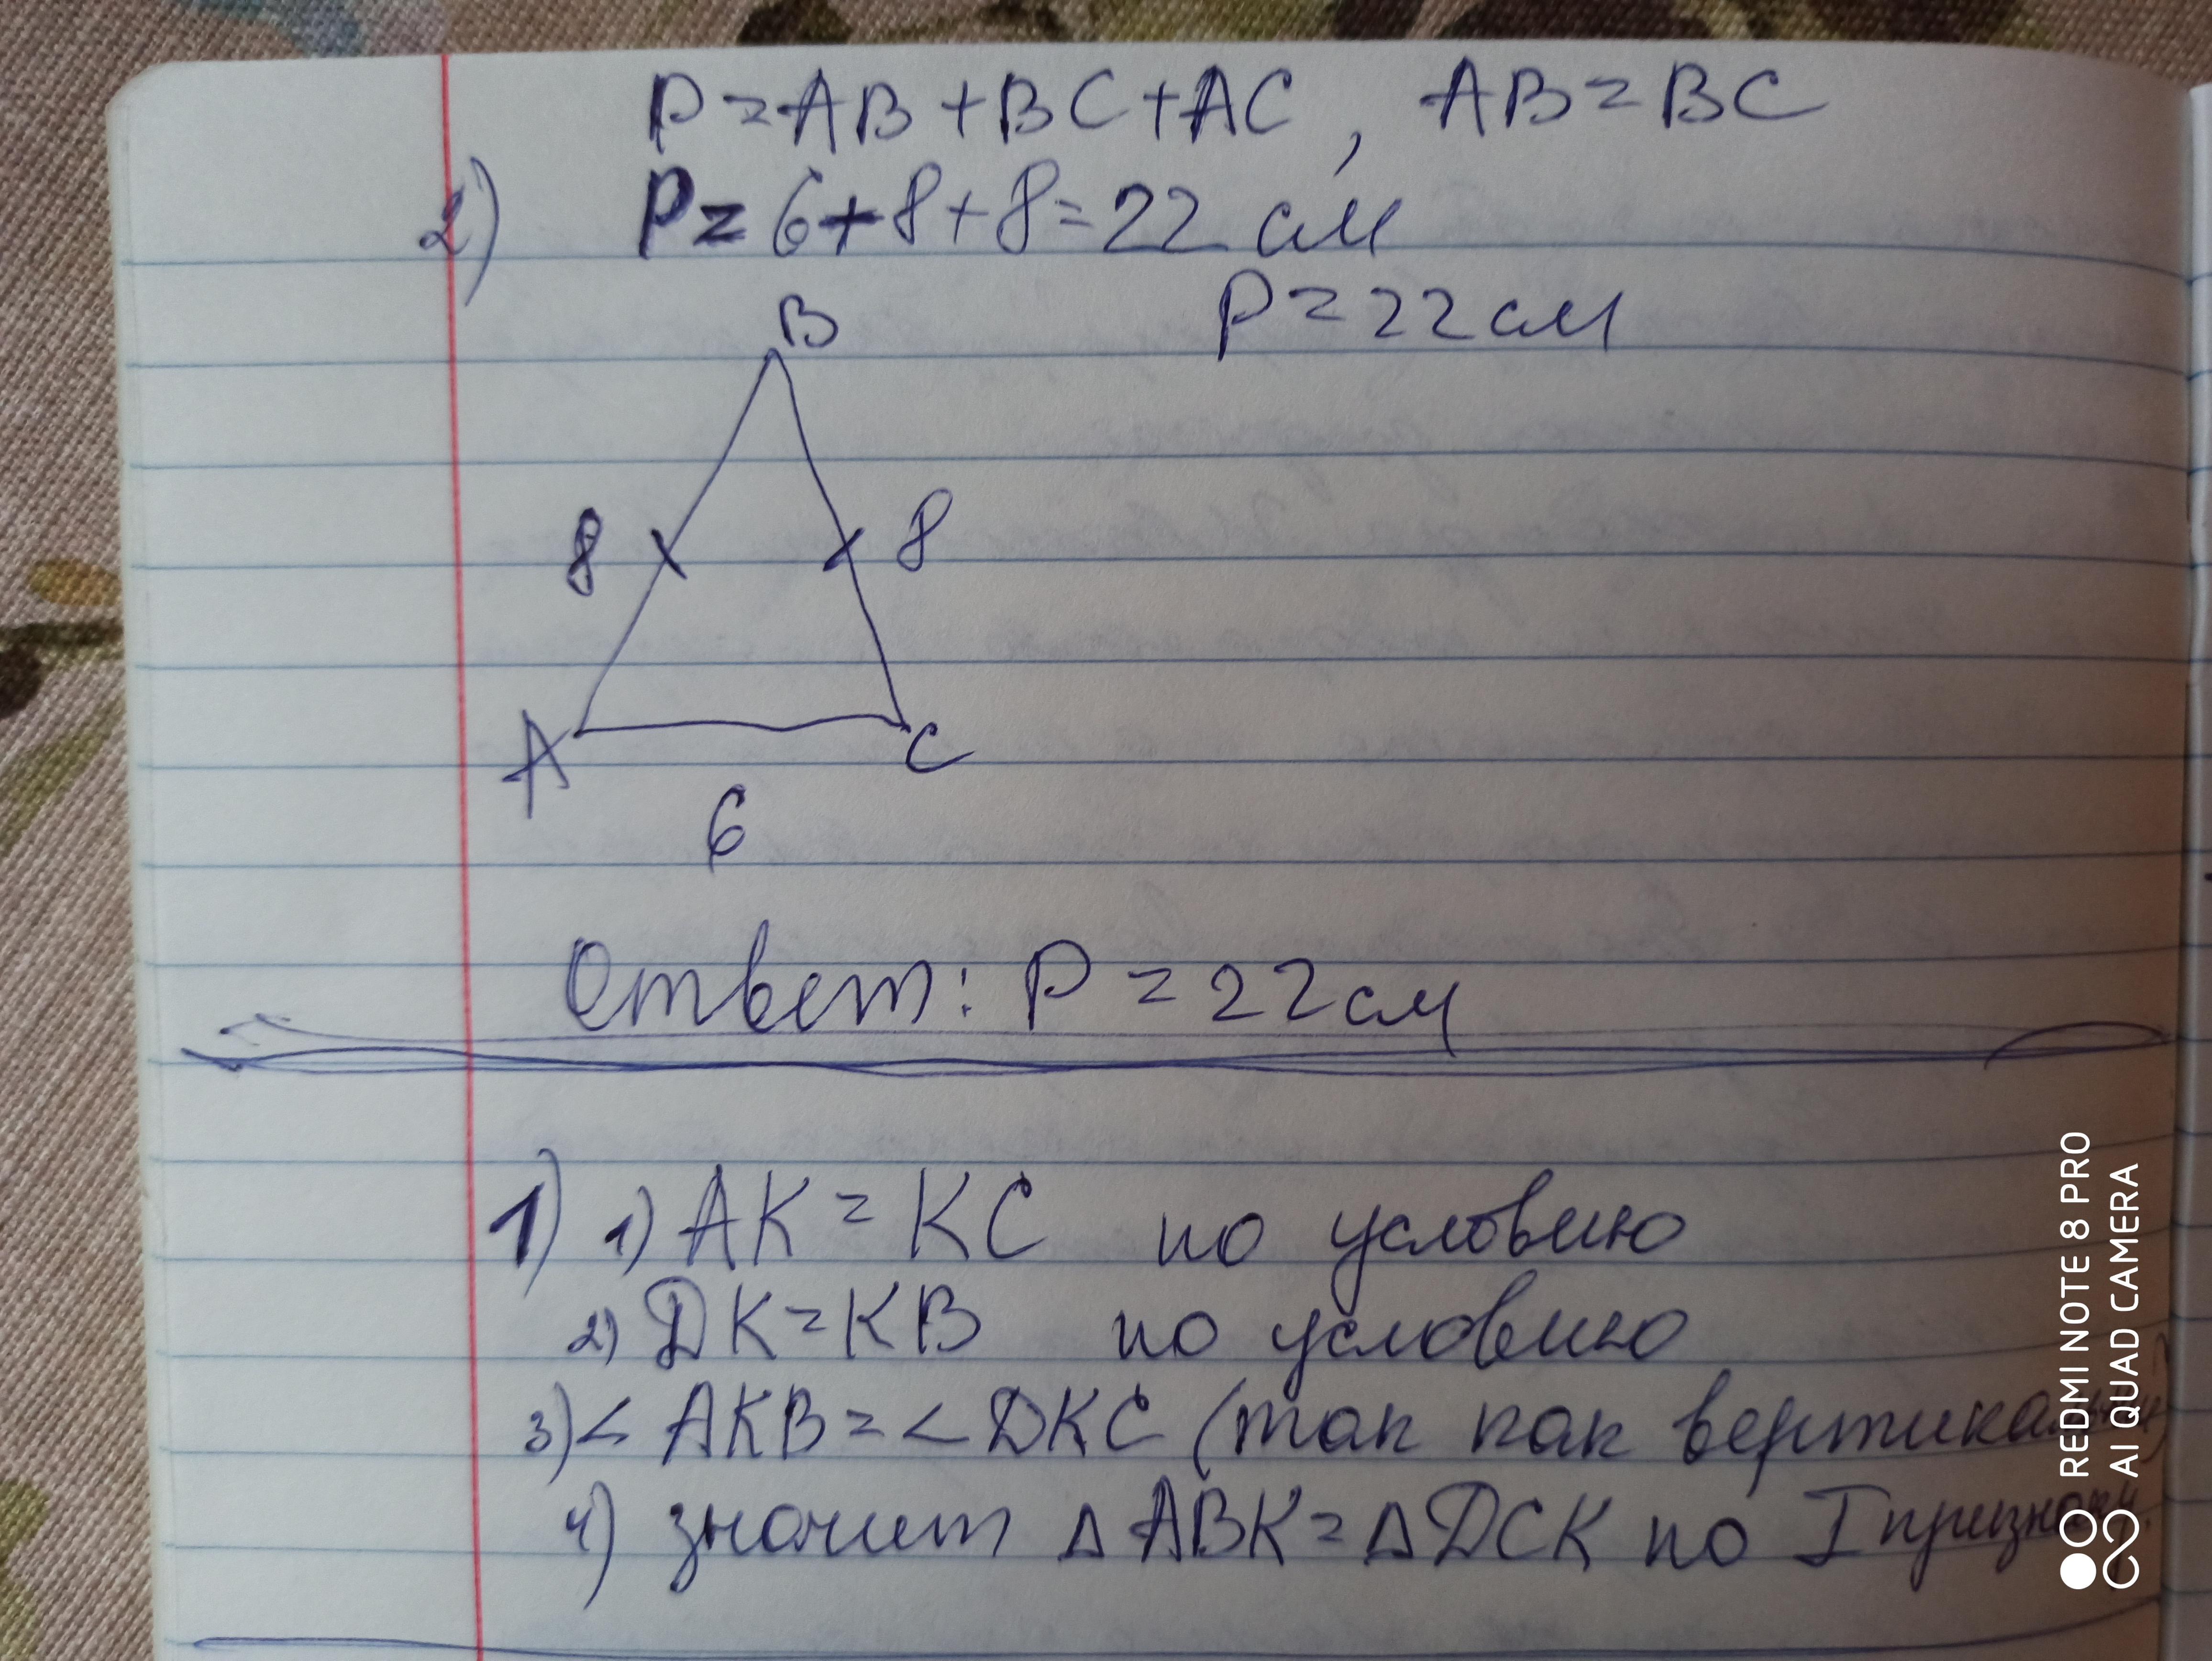 P=AB+BC+AC, AB=BC
2) P=6+8+8=22 см
P=22см
B
8 8
A C
6
Ответ: P=22см
1) 1) AK=KC по условию
2) DK=KB по условию
3) < AKB=<DKC (так как вертикальн)
4) значит Δ ABK=Δ DCK по I признаку.
REDMI NOTE 8 PRO
AI QUAD CAMERA